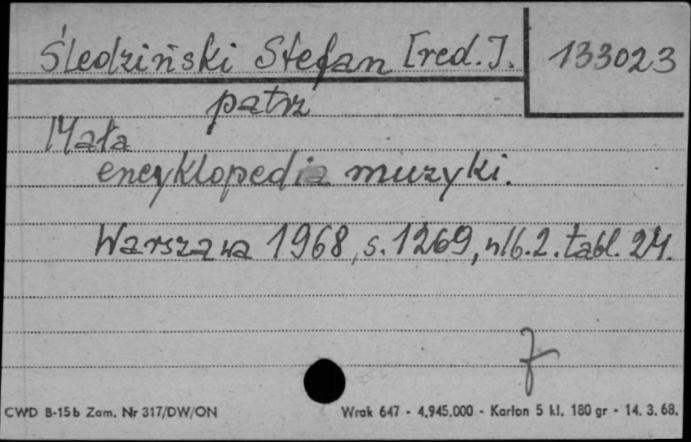 Śledziński Stefan [red.]. 133023
patrz
Mała
encyklopedia muzyki.
Warszawa 1968, s. 1269, nlb. 2. tabl. 24.
CWD B-15b Zam. Nr 317/DW/ON Wrak 647 - 4.945.000 - Karton 5 kl. 180 gr - 14. 3. 68.